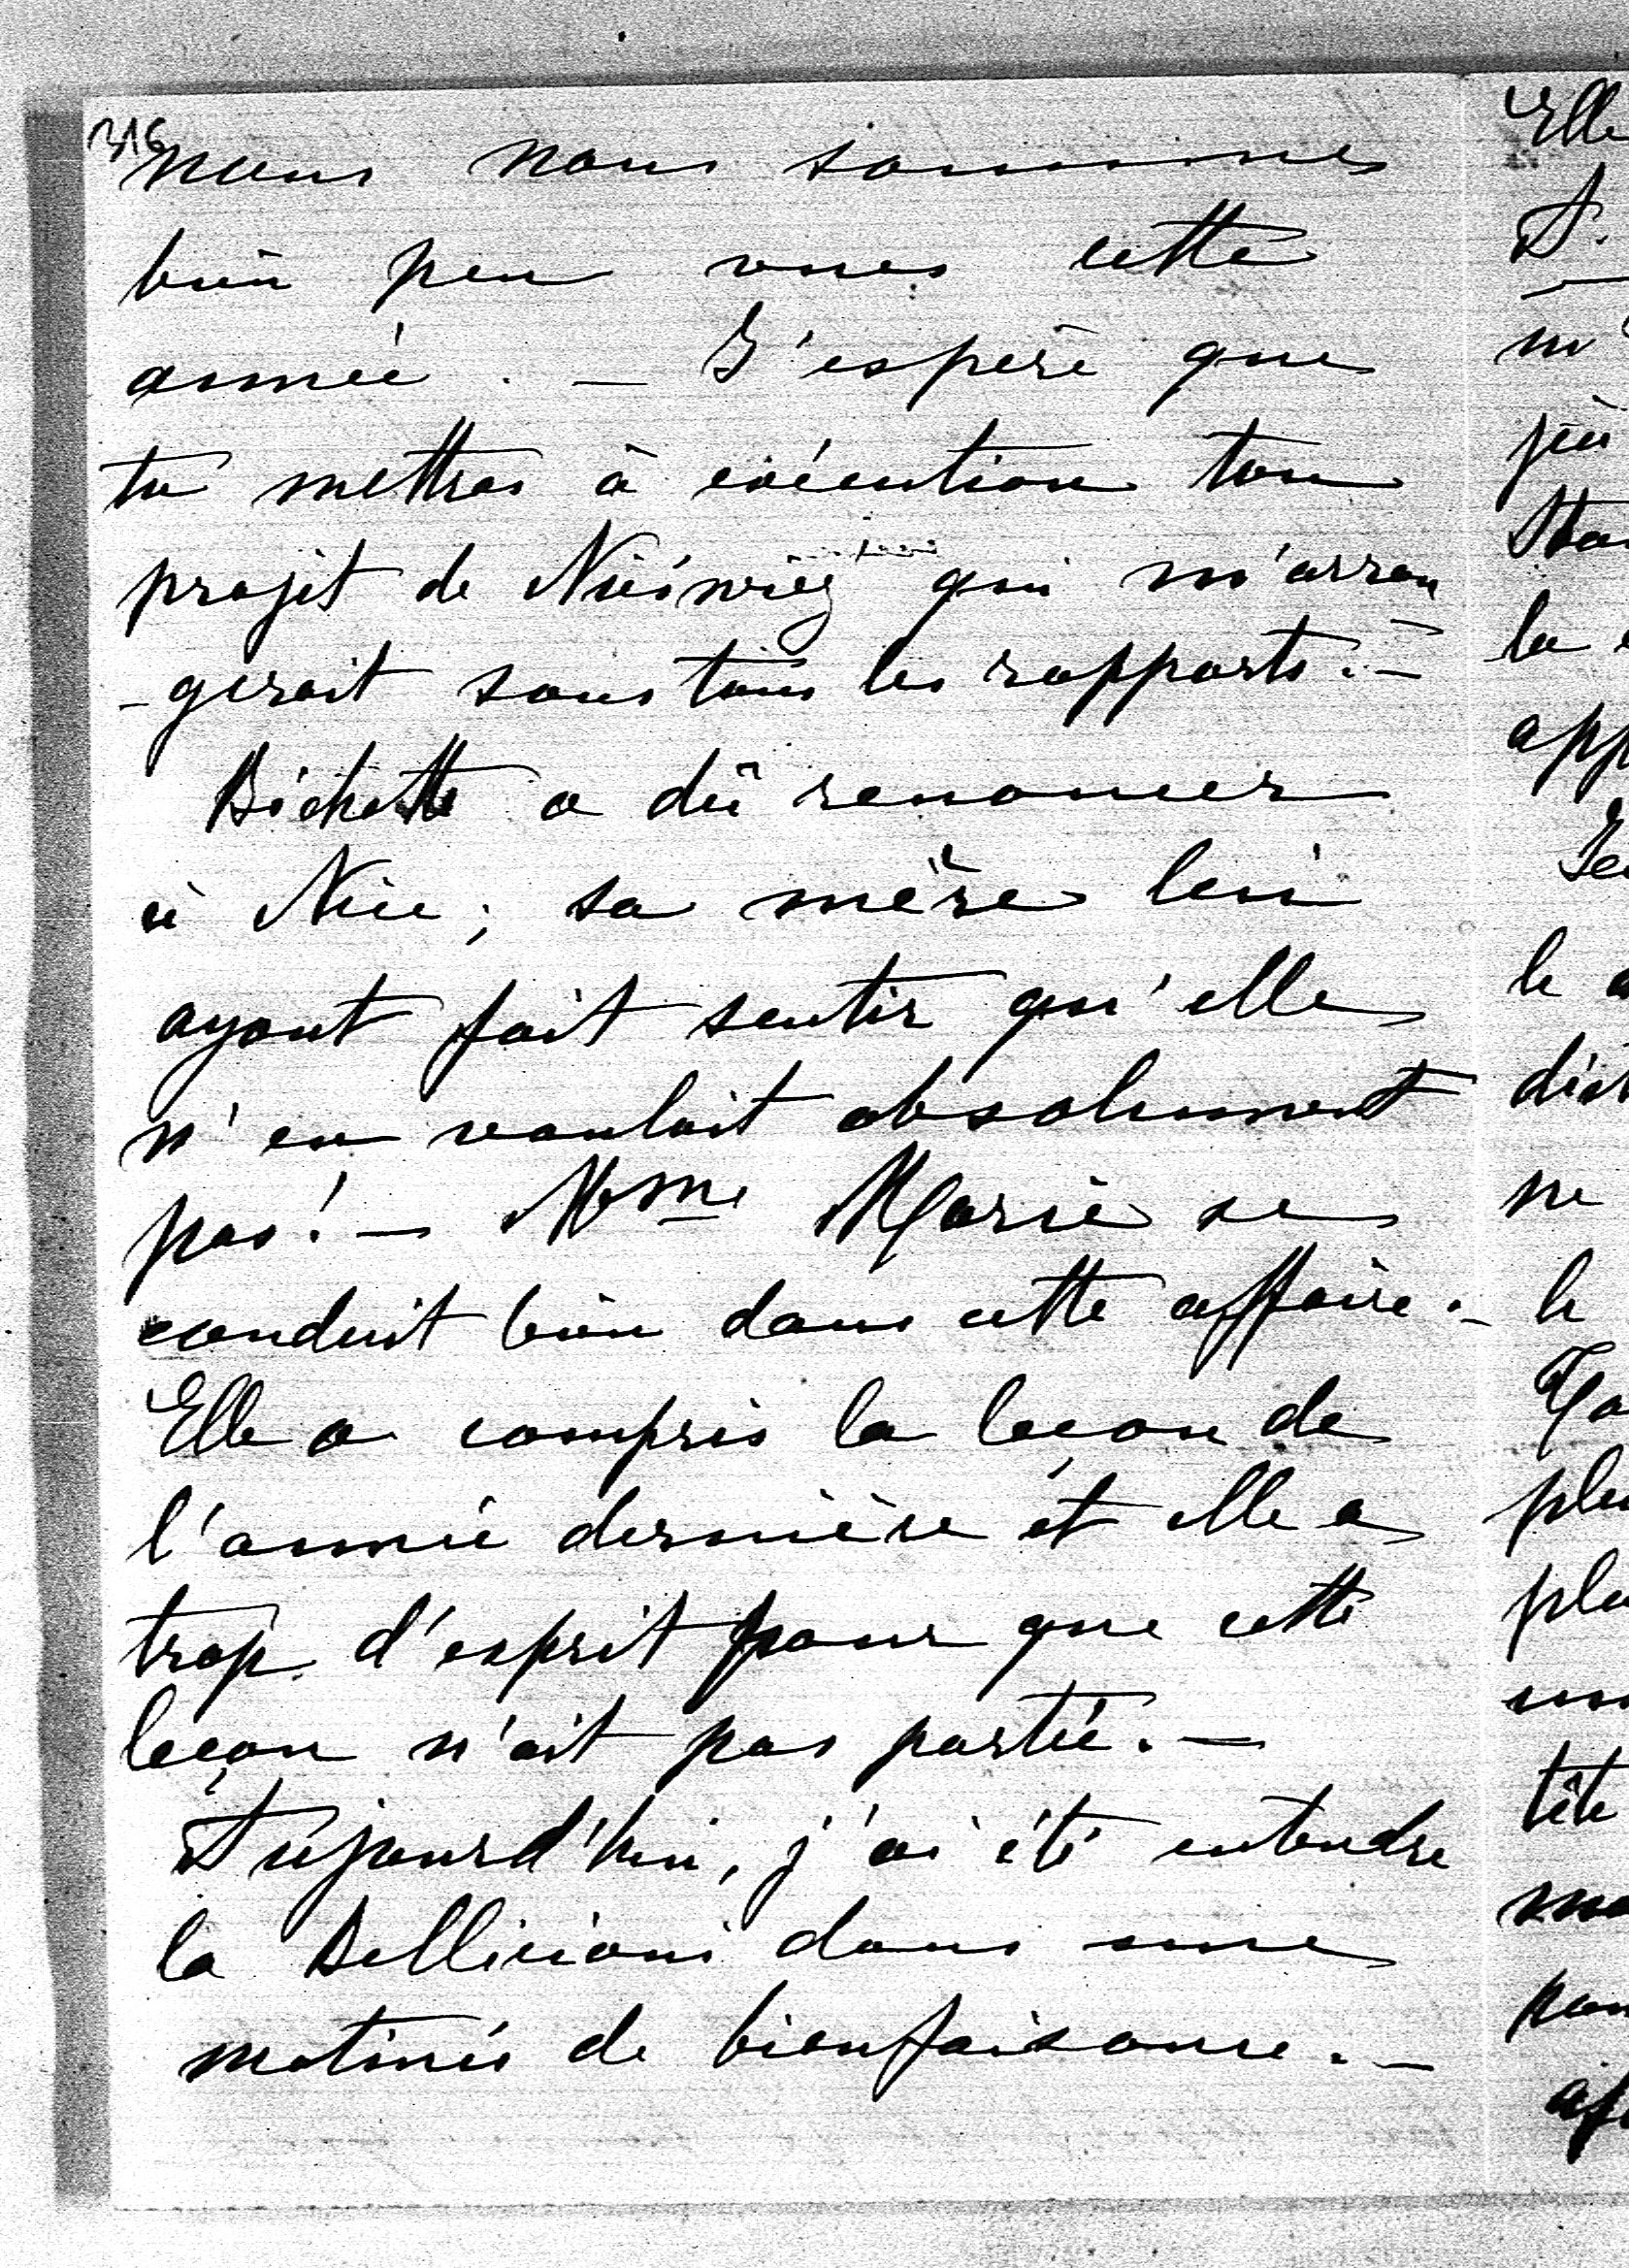 316
nous nous sommes
bien peu vues cette
année. — J'espère que
tu mettras à exécution ton
projet de Nieśwież qui m'arran
-gerait sous tous les rapports. —
Bichette a dû renoncer
à Nice; sa mère lui
ayant fait sentir qu'elle
n'en voulait absolument
pas! — Mme Marie se
conduit bien dans cette affaire. —
Elle a compris la leçon de
l'année dernière et elle a
trop d'esprit pour que cette
leçon n'ait pas porté. —
Aujourd'hui, j'ai été entendre
la Bellincioni dans une
matinée de bienfaisance. —
Elle
la
app
le
ne
le
plu
tête